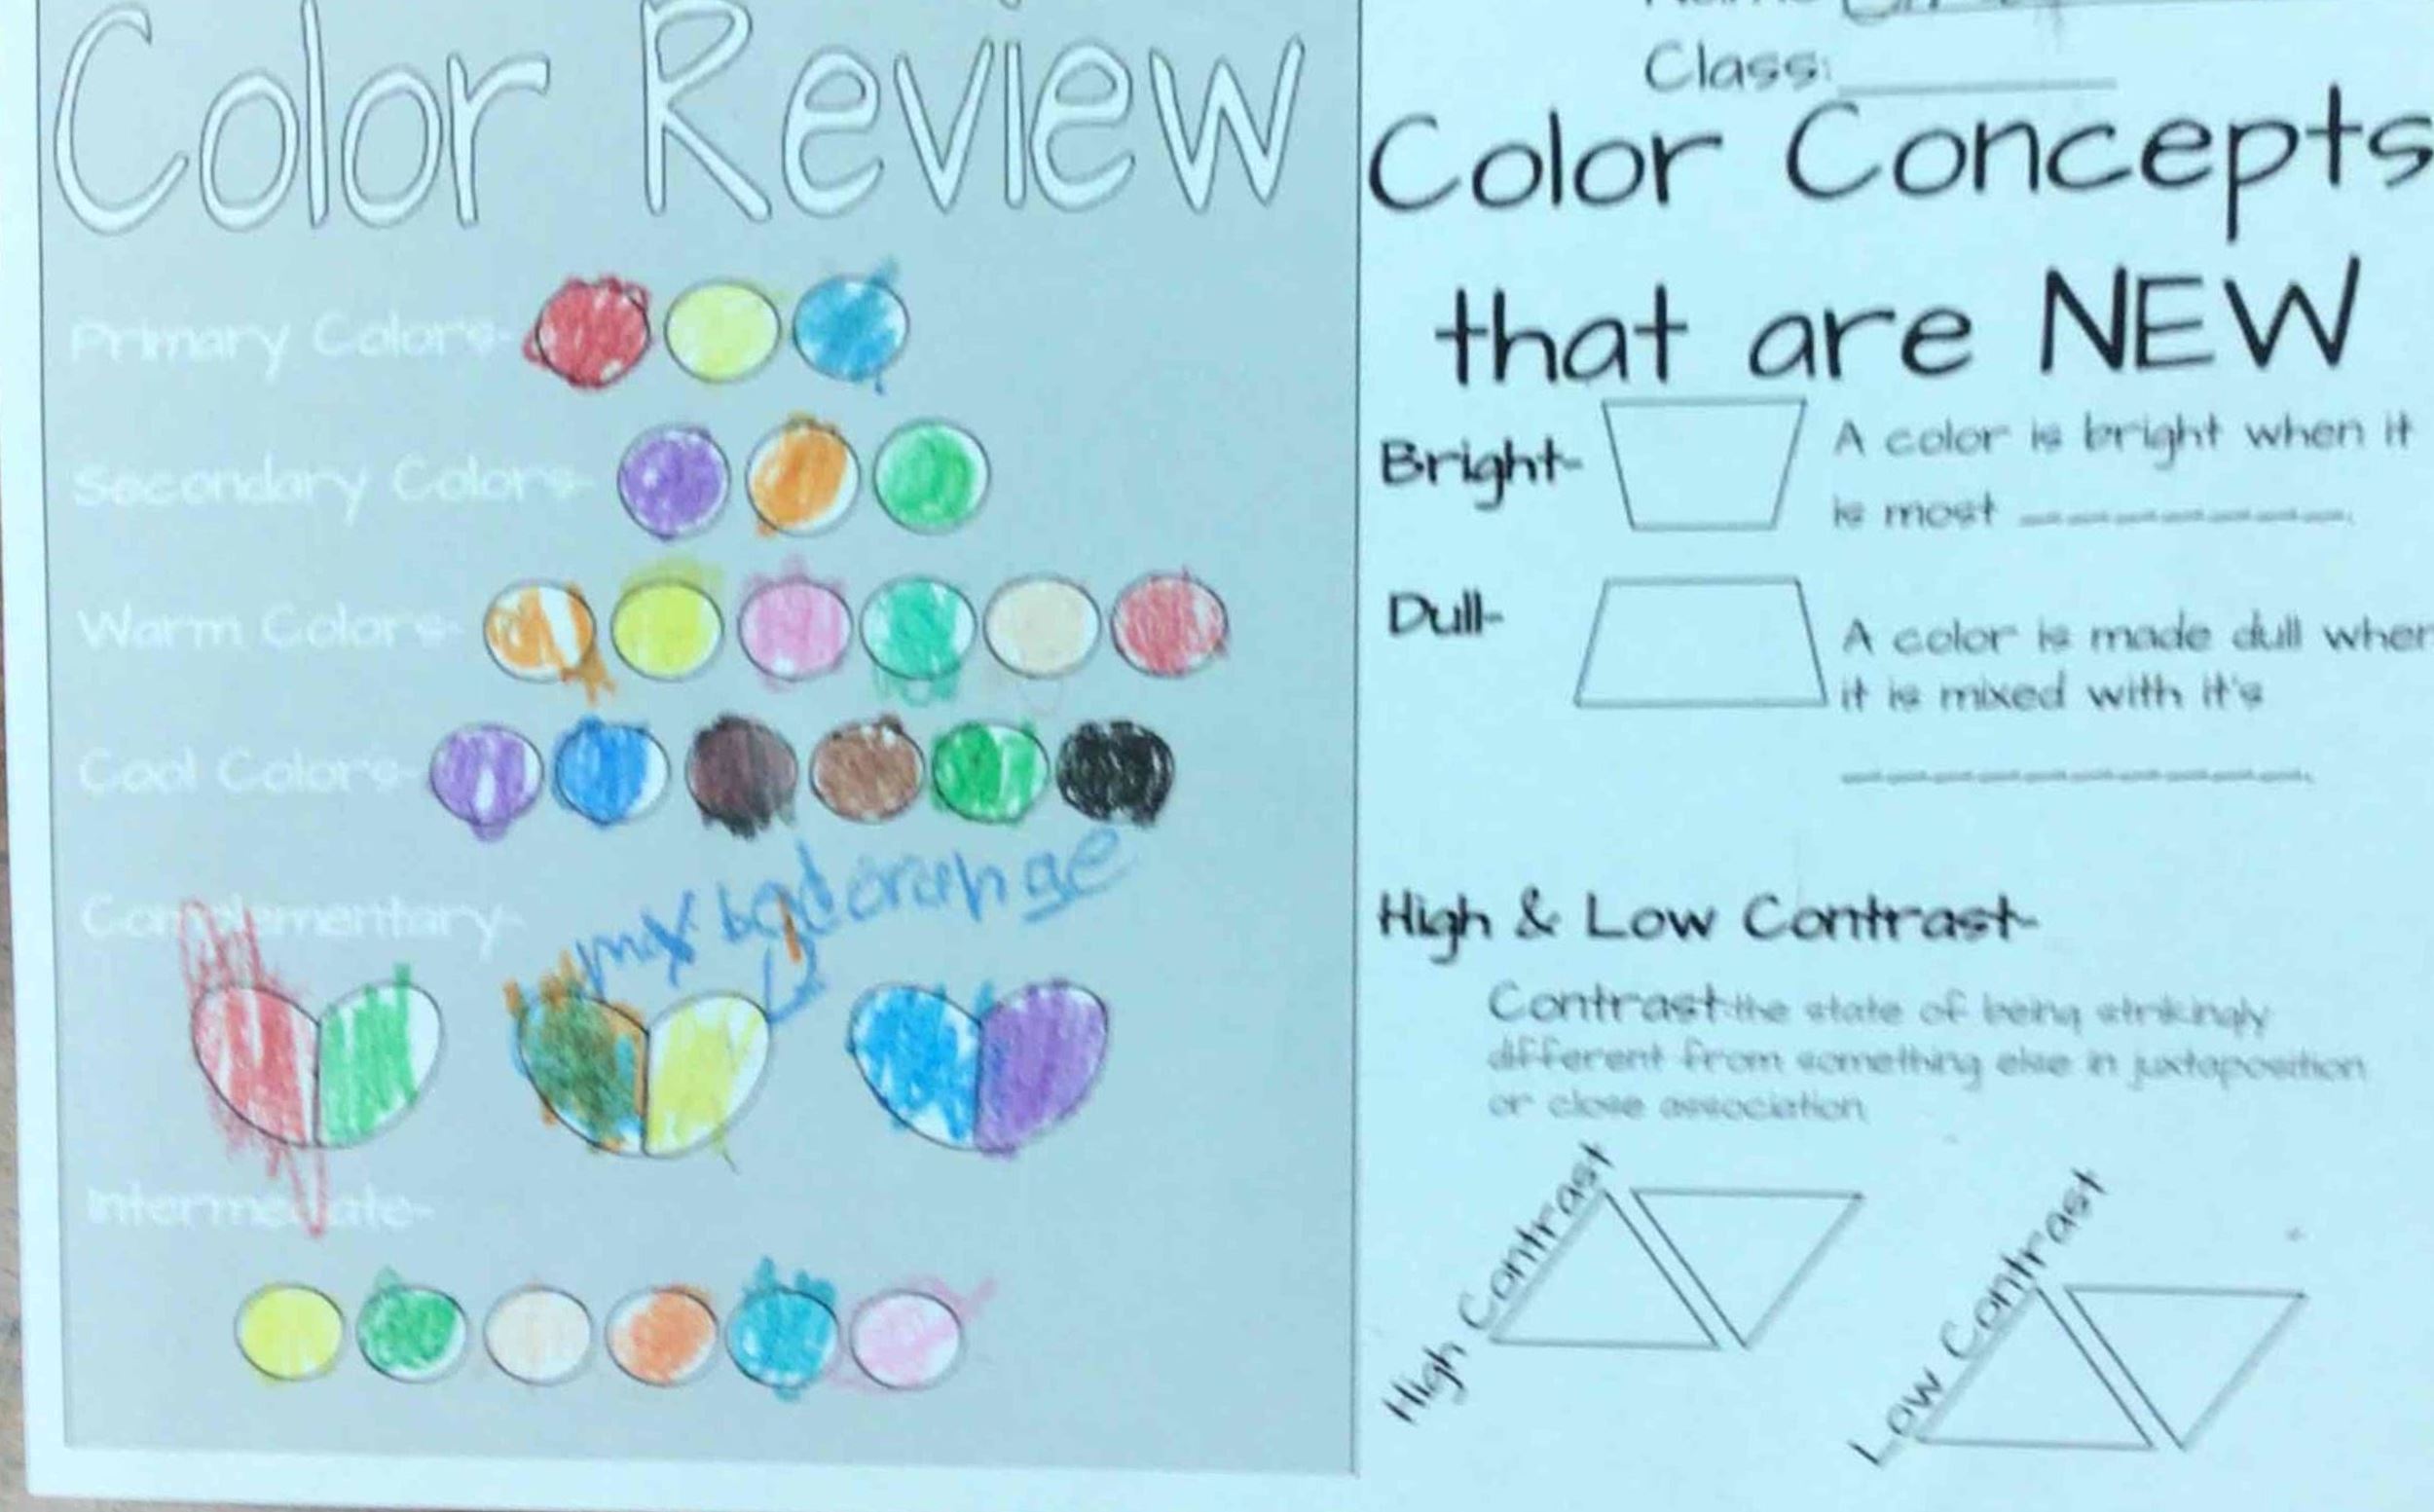 Color Review
Primary Colors-
Secondary Colors-
Warm Colors-
Cool Colors-
Complementary-
orange
Intermediate-
Class:
Color Concepts
that are NEW
Bright-
A color is bright when it
is most
Dull-
A color is made dull when
it is mixed with it's
High & Low Contrast-
Contrast-the state of being strikingly
different from something else in juxtaposition
or close association
High Contrast
Low Contrast